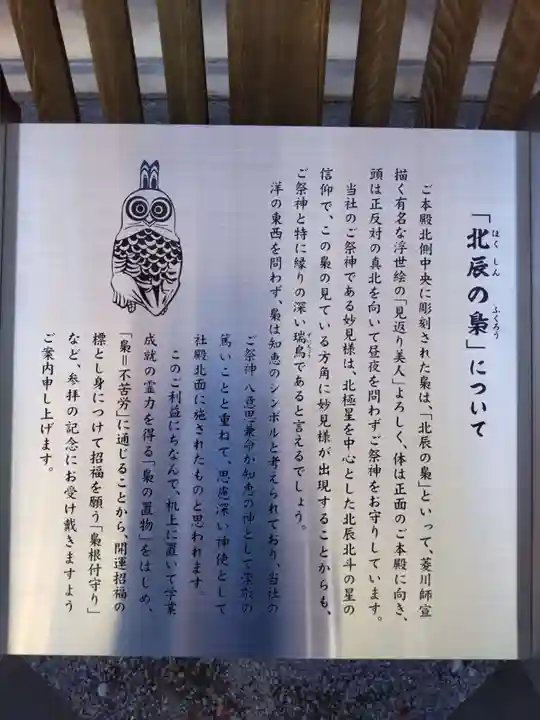 「北辰の梟」について
ほくしん ふくろう
ご本殿北側中央に彫刻された梟は、「北辰の梟」といって、菱川師宣
描く有名な浮世絵の「見返り美人」よろしく、体は正面のご本殿に向き、
頭は正反対の真北を向いて昼夜を問わずご祭神をお守りしています。
当社のご祭神である妙見様は、北極星を中心とした北辰北斗の星の
信仰で、この梟の見ている方角に妙見様が出現することからも、
ご祭神と特に縁りの深い瑞鳥であると言えるでしょう。
ずいちょう
洋の東西を問わず、梟は知恵のシンボルと考えられており、当社の
ご祭神 八意思兼命が知恵の神として崇敬の
篤いことと重ねて、思慮深い神使として
社殿北面に施されたものと思われます。
このご利益にちなんで、机上に置いて学業
成就の霊力を得る「梟の置物」をはじめ、
「梟=不苦労」に通じることから、開運招福の
標とし身につけて招福を願う「梟根付守り」
など、参拝の記念にお受け戴きますよう
ご案内申し上げます。